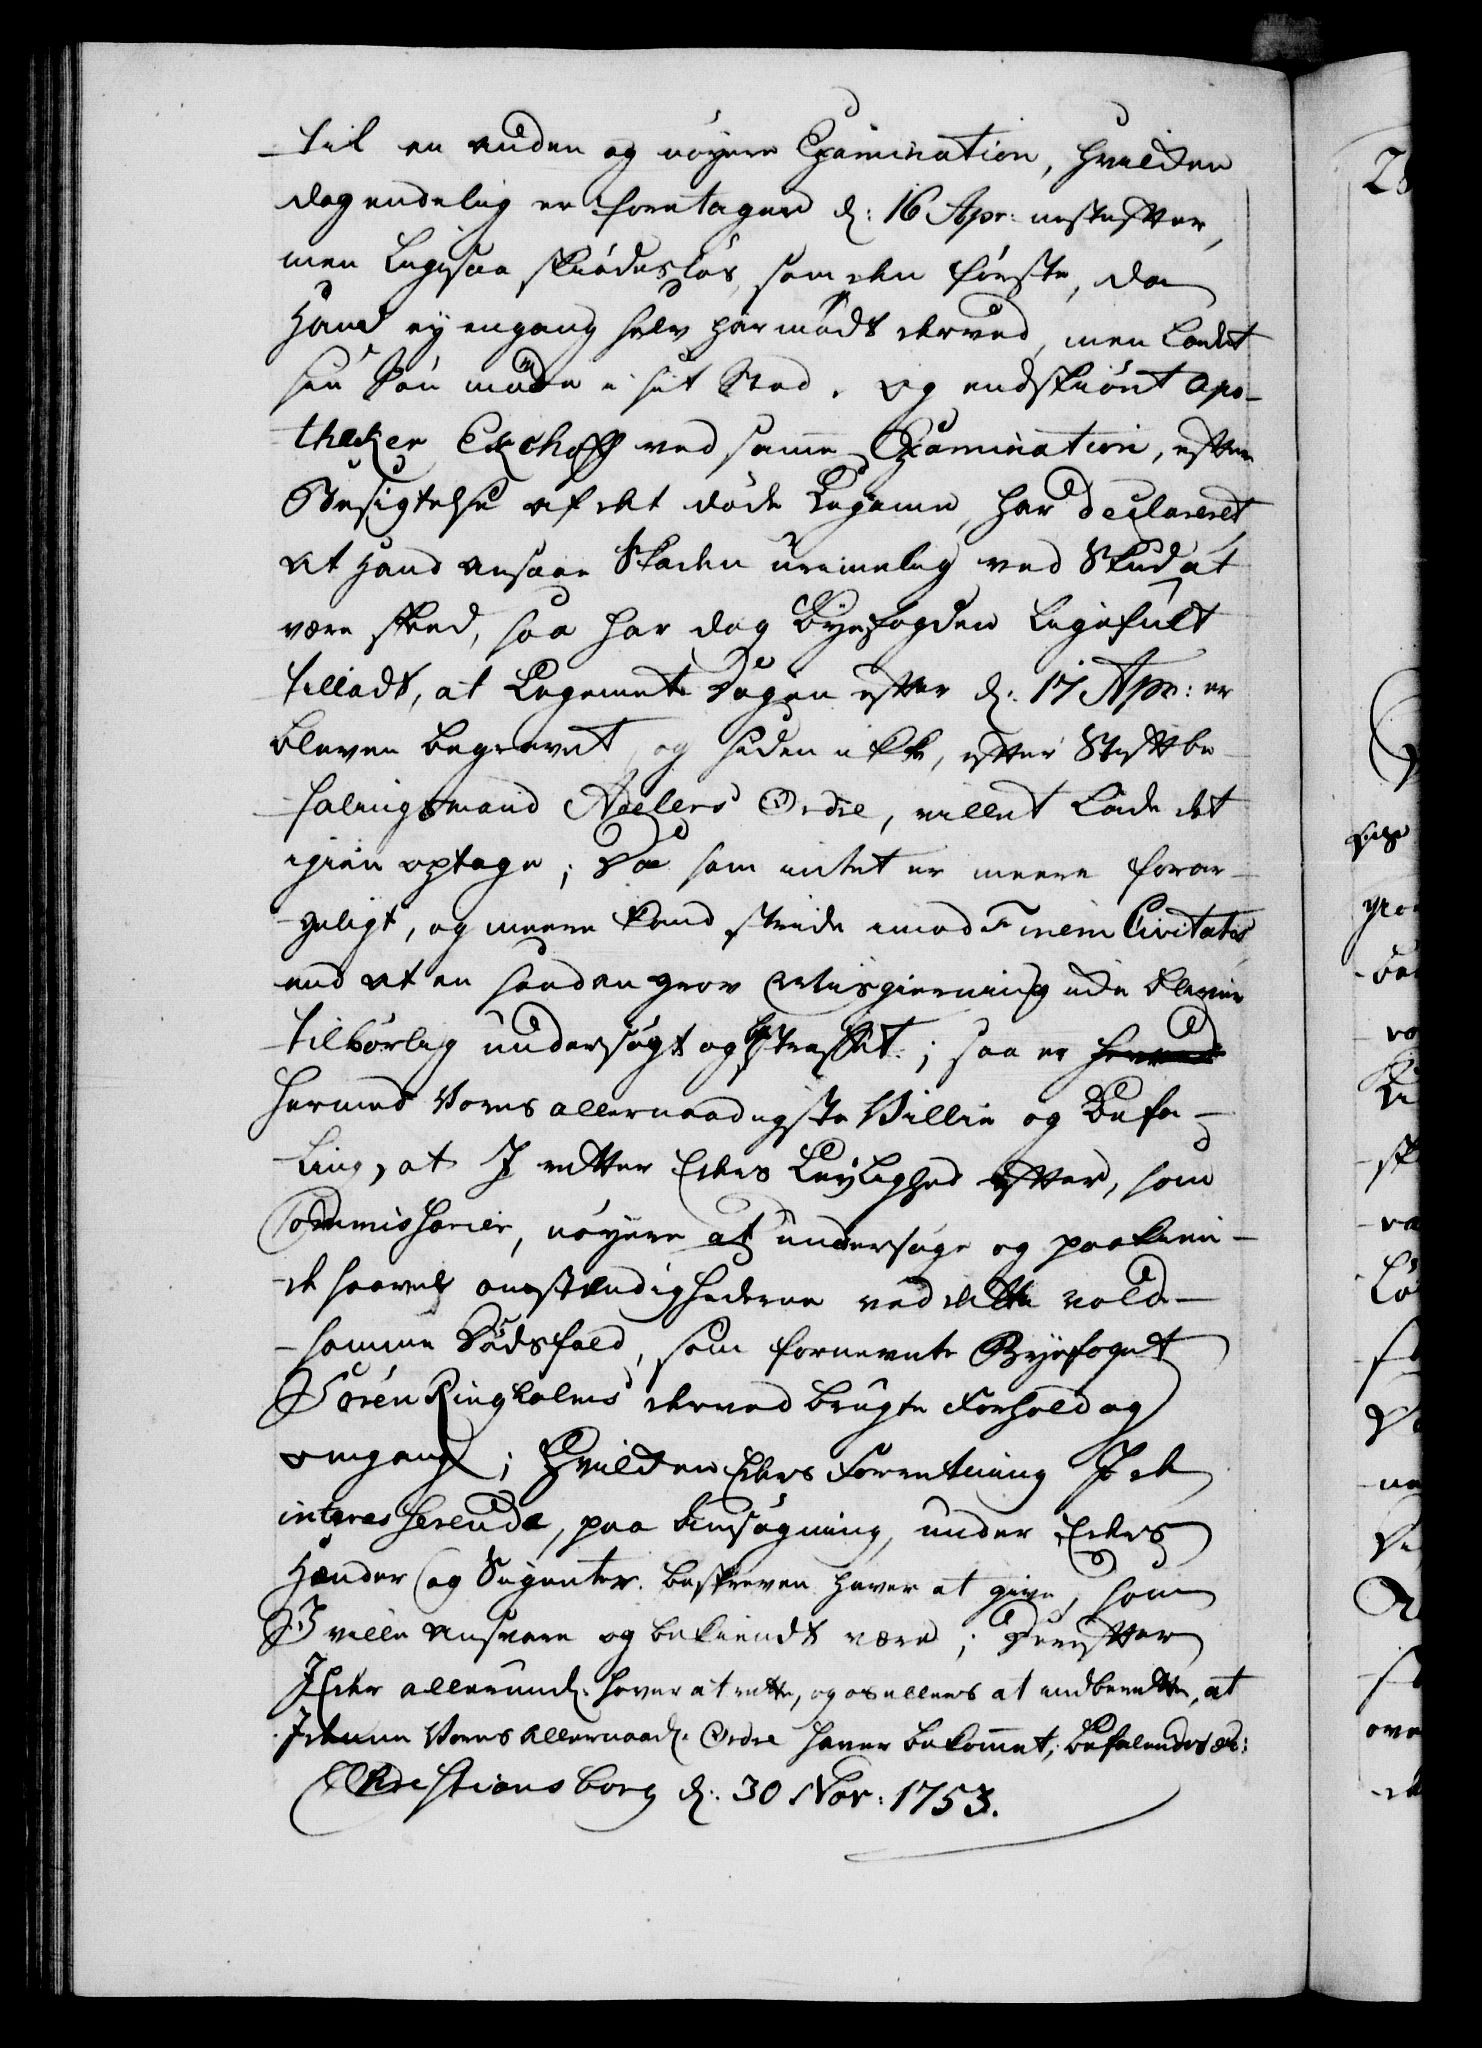 til en anden og nöyere Examination, hvilken
dog endelig er foretagen d: 16 Apr: nestefter,
men ligesaa skiödeslös, som den förste, da
Hand ey engang selv har mödt derved, men ladet
sin Sön möde i sit Sted. og endskiönt Apo-
theker Eckhoff ved samme Examination, efter
Besigtelse af det döde Legeme, har declareret
at Hand ansaae Skaden urimelig ved Skud at
være skeed, saa har dog Byefogden ligefult
tilladt, at Legemet Dagen efter d: 17 Apr: er
bleven begravet, og siden ikke, efter Stiftbe-
falingsmand Adelers Ordre, villet lade det
igien optage; Da som intet er meere forar-
geligt, og meere kand stride imod Finem Civitatis
end at en saadan grov Misgierning ude bliver
tilbörlig undersögt og bestraffet; saa er
hermed Vores allernaadigste Villie og Befa-
ling, at I retter Eders Leylighed efter, som
Commissarier, nöyere at undersöge og paakien-
de saavel omstændighederne ved dette vold-
somme Dödsfald, som fornevnte Byefoget
Sören Ringholms derved brugte Forhold og
omgang; Hvilken Eders Forretning I de
interesserende, paa Ansögning, under Eders
Hænder og Signeter beskreven haver at give, som
I ville ansvare og bekiendt være; Derefter
I Eder allerund. haver at rette, og os ellers at indberette, at
I denne Vores allernaad. Ordre haver bekommet; Befalendes etc:
Christiansborg d: 30 Nov: 1753.